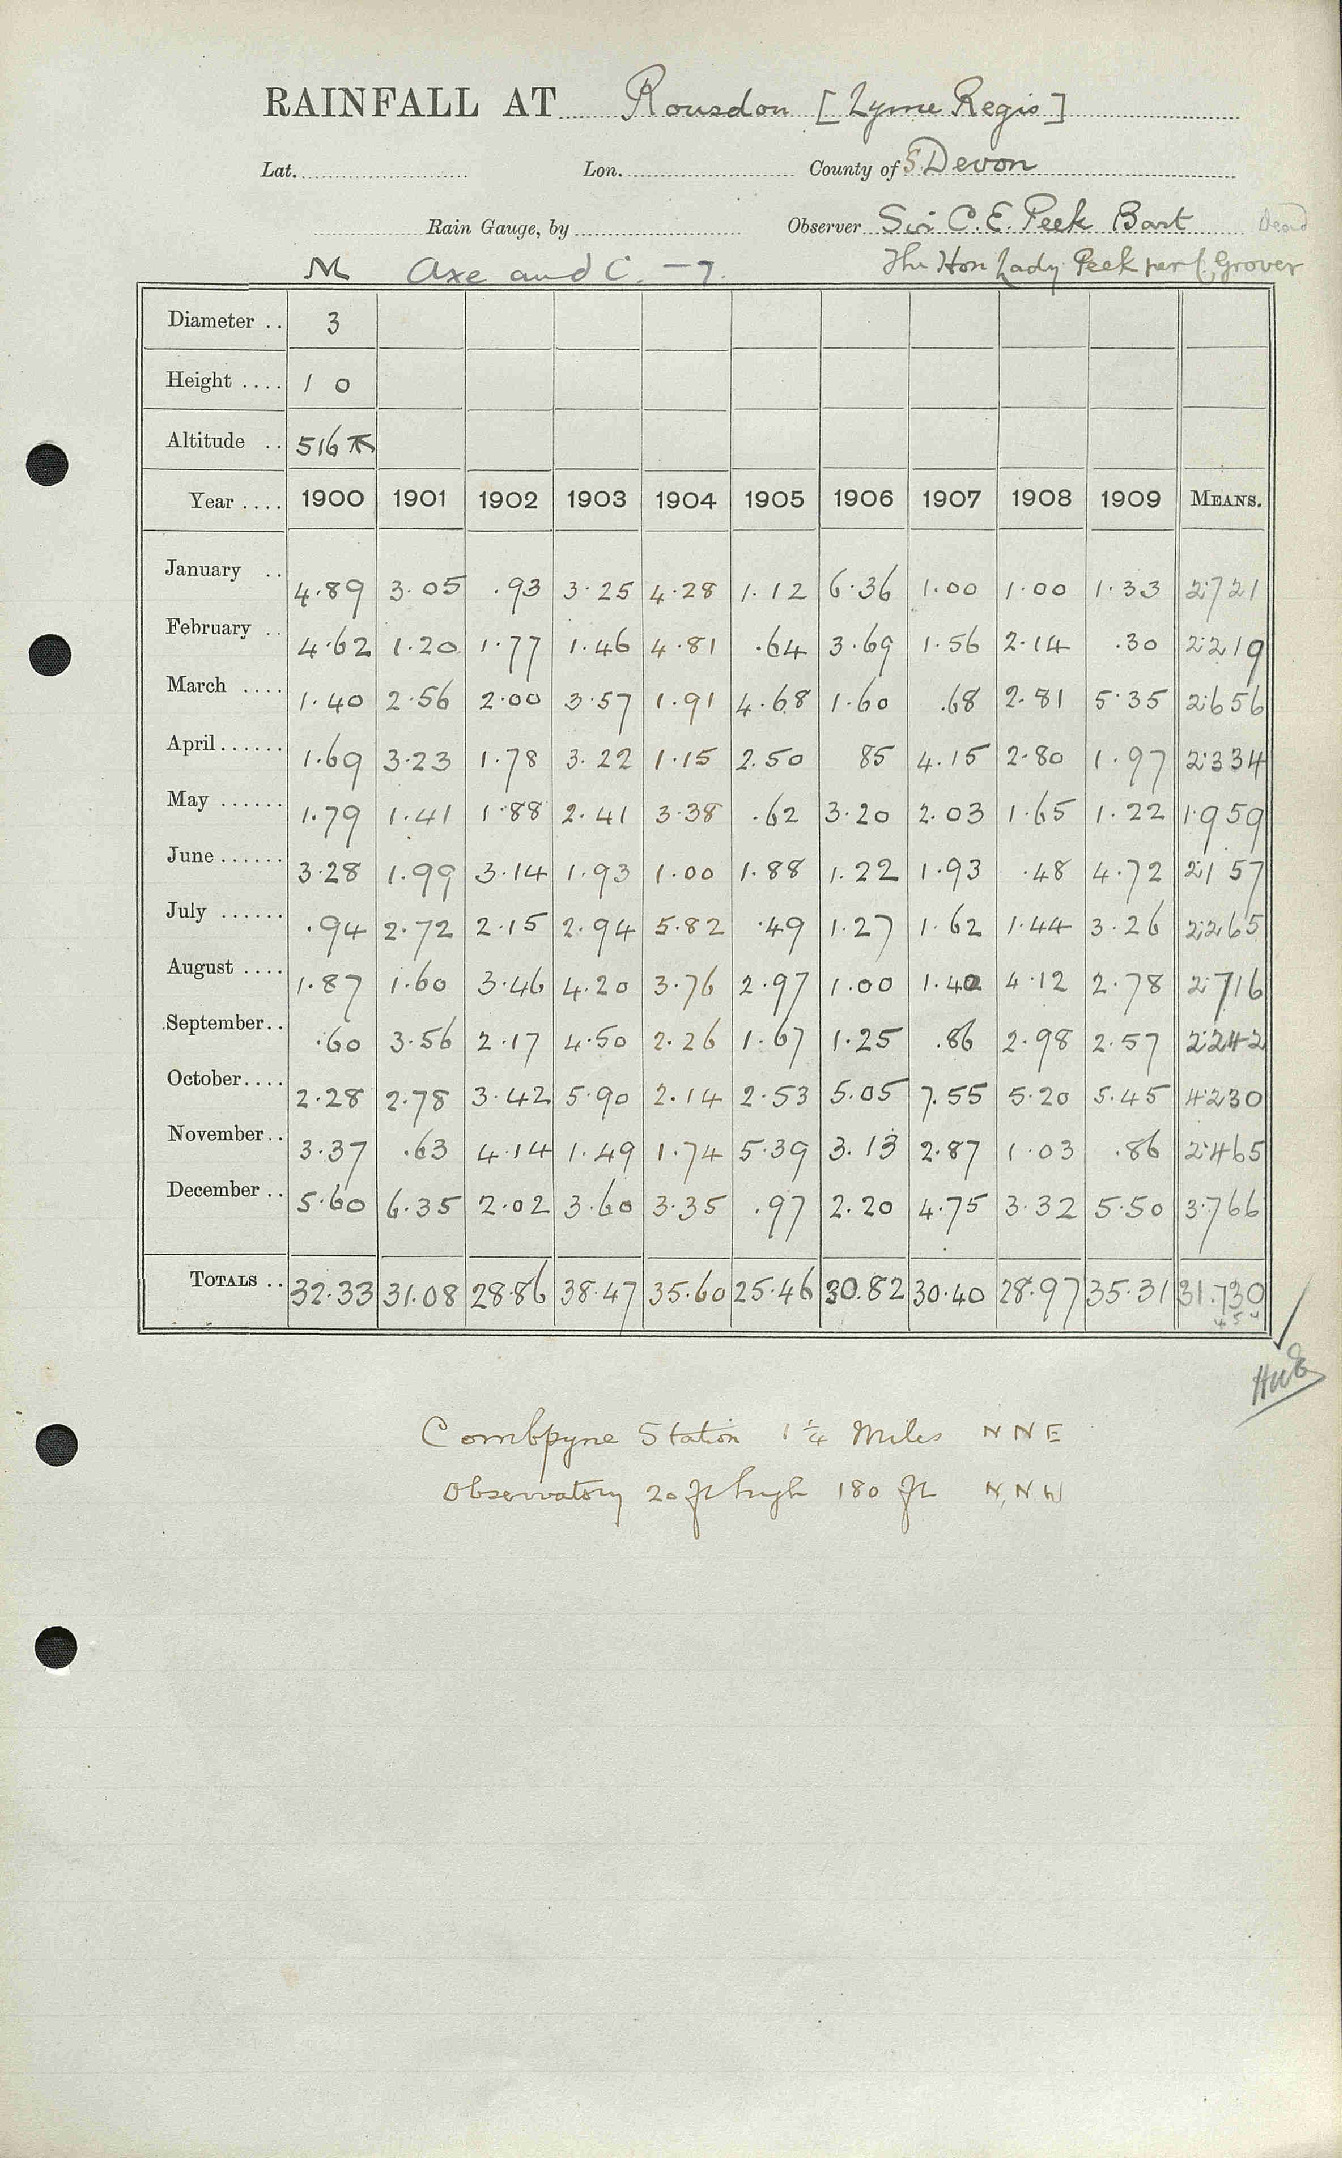 RAINFALL AT Rousdon [Lyme Regis]
Lat. Lon. County of S. Devon
Rain Gauge, by Observer Sir C. E. Peek Bart Dead
M Axe and C. – 7. The Hon Lady Peek per C. Grover
Diameter .. 3
Height .... 1 0
Altitude .. 516 T
Year .... 1900 1901 1902 1903 1904 1905 1906 1907 1908 1909 MEANS.
January .. 4.89 3.05 .93 3.25 4.28 1.12 6.36 1.00 1.00 1.33 2.721
February .. 4.62 1.20 1.77 1.46 4.81 .64 3.69 1.56 2.14 .30 2.219
March .... 1.40 2.56 2.00 3.57 1.91 4.68 1.60 .68 2.81 5.35 2.656
April ...... 1.69 3.23 1.78 3.22 1.15 2.50 85 4.15 2.80 1.97 2.334
May ...... 1.79 1.41 1.88 2.41 3.38 .62 3.20 2.03 1.65 1.22 1.959
June ...... 3.28 1.99 3.14 1.93 1.00 1.88 1.22 1.93 .48 4.72 2.157
July ...... .94 2.72 2.15 2.94 5.82 .49 1.27 1.62 1.44 3.26 2.265
August .... 1.87 1.60 3.46 4.20 3.76 2.97 1.00 1.40 4.12 2.78 2.716
September .. .60 3.56 2.17 4.50 2.26 1.67 1.25 .86 2.98 2.57 2.242
October .... 2.28 2.78 3.42 5.90 2.14 2.53 5.05 7.55 5.20 5.45 4.230
November .. 3.37 .63 4.14 1.49 1.74 5.39 3.13 2.87 1.03 .86 2.465
December .. 5.60 6.35 2.02 3.60 3.35 .97 2.20 4.75 3.32 5.50 3.766
TOTALS .. 32.33 31.08 28.86 38.47 35.60 25.46 30.82 30.40 28.97 35.31 31.730
Combpyne Station 1 1/4 Miles NNE
Observatory 20 ft high 180 ft N.N W